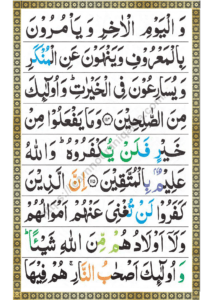 وَالْيَوْمِ الْاٰخِرِ وَيَاْمُرُوْنَ
بِالْمَعْرُوْفِ وَيَنْهَوْنَ عَنِ الْمُنْكَرِ
وَيُسَارِعُوْنَ فِى الْخَيْرٰتِ ؕ وَاُولٰٓئِكَ
مِنَ الصّٰلِحِيْنَ ﴿۱۱۴﴾ وَمَا يَفْعَلُوْا مِنْ
خَيْرٍ فَلَنْ يُّكْفَرُوْهُ ؕ وَاللّٰهُ
عَلِيْمٌۢ بِالْمُتَّقِيْنَ ﴿۱۱۵﴾ اِنَّ الَّذِيْنَ
كَفَرُوْا لَنْ تُغْنِىَ عَنْهُمْ اَمْوَالُهُمْ
وَلَاۤ اَوْلَادُهُمْ مِّنَ اللّٰهِ شَيْـًٔا ؕ
وَاُولٰٓئِكَ اَصْحٰبُ النَّارِ ۚ هُمْ فِيْهَا